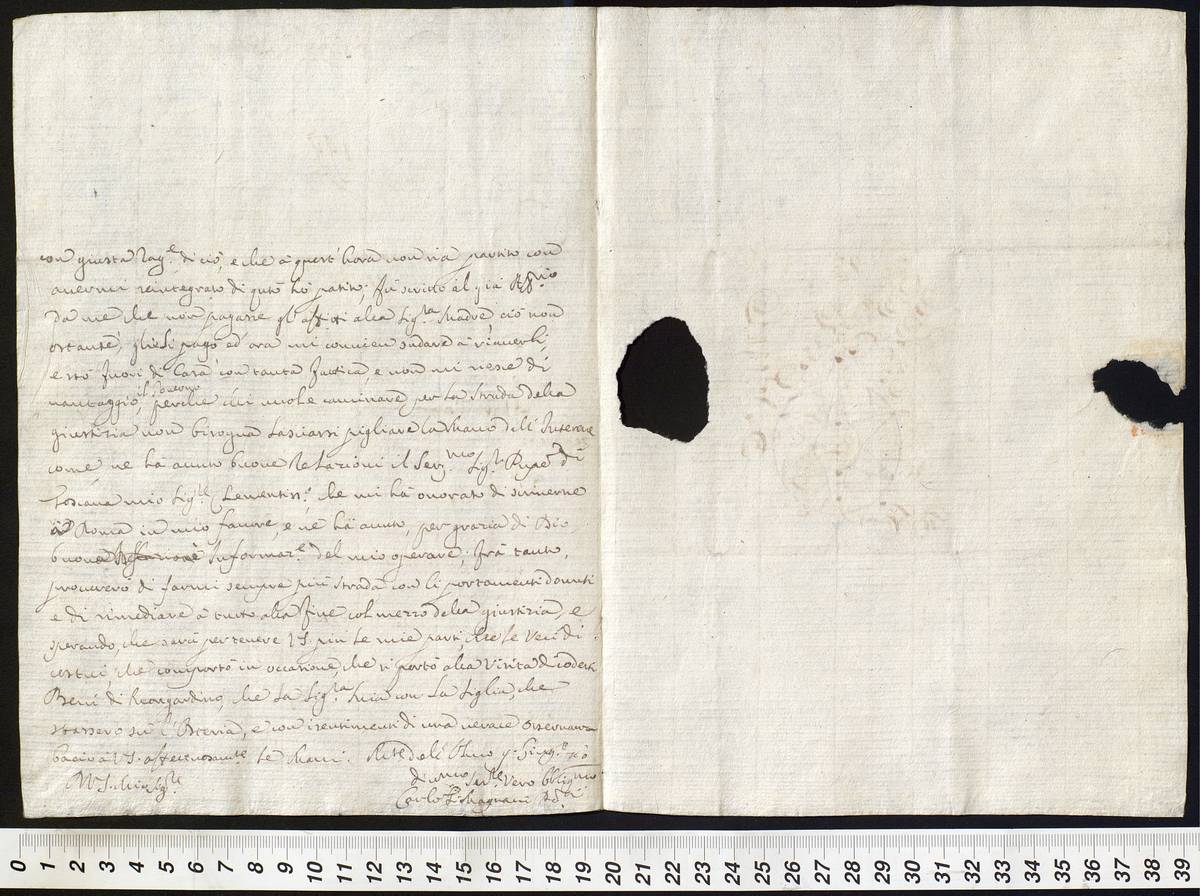 con giusta Rag.e di ciò, e che à quest'hora non sia partito con
avermi reintegrato di q.nto hò patito; fu scritto al già
Da me che non pagasse gl'affitti alla Sig.ra Madre ciò non
ostante, gliesi pagò ed ora mi convien andare à riaverli,
e stò fuori di Casa con tanta fatica, e non mi riesce di
vantaggio, il Governo perche chi vuole caminare per la strada della
giustizia non bisogna lasciarsi pigliare la Mano dell'Interesse
come ne hà avuto buone Relazioni il Ser.mo Sig.r di
Toscana mio Sig.re Clementiss.o che mi hà onorato di scriverne
à Roma in mio favore, e ne hà avuto, per grazia di Dio
buone Informaz.e del mio operare; frà tanto,
procurerò di farmi sempre più strada con li portamenti dovuti
e di rimediare à tutto alla fine col mezzo della giustizia, e
sperando, che sarà per tenere V.S. più le mie parti, che le veci di
costui, che comportò in occasione, che si portò alla Visita di codesti
Beni, di che la Sig.ra Mia con la figlia, che
stassero sù l'Osteria, e con i sentimenti di una verace osservanza
bacio à V.S. affettuosam.te le Mani.
V.S. Mio Sig.re
Ser.re Vero Obblig.mo
Carlo Magnani